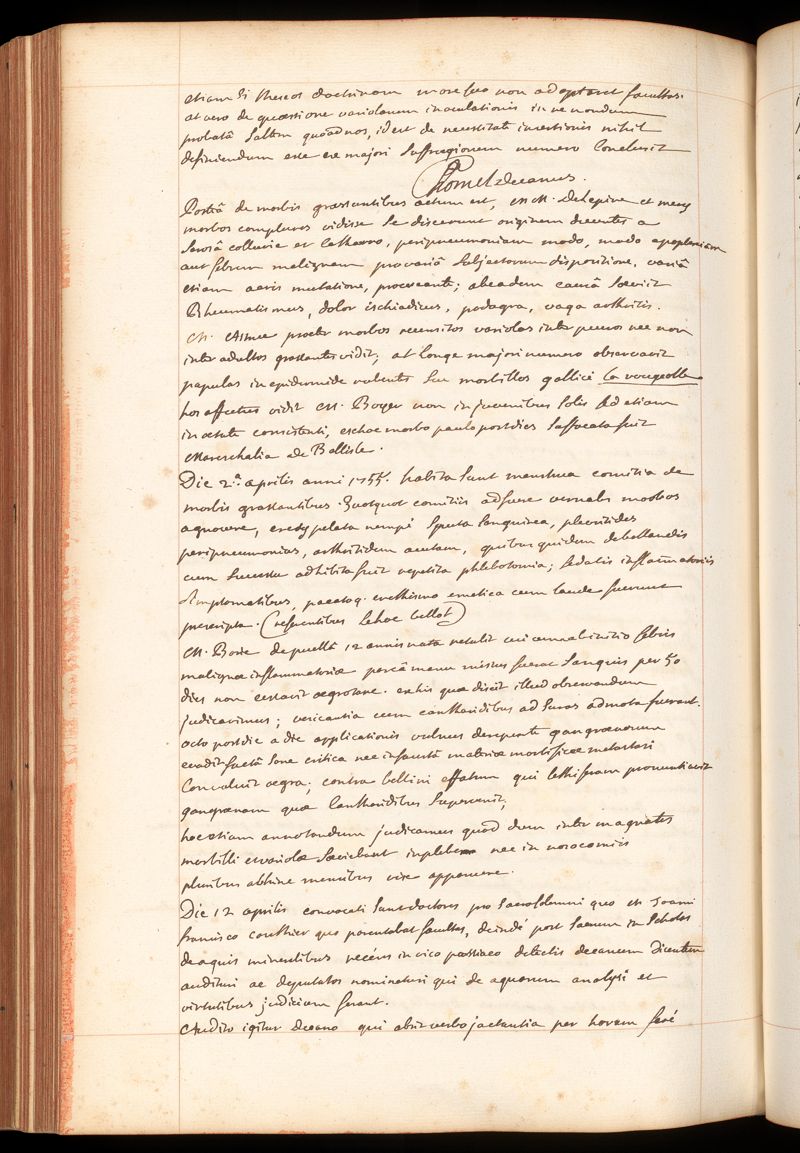 etiam si theseos doctrinam more suo non adoptaret facultas.
at vero de quæstione variolarum inoculationis in re nondum
probatâ saltem quoad nos, id est de necessitate insertionis nihil
definiendum esse ex majori suffragiorum numero conclusit
Chomel decanus.
Posteà de morbis grassantibus actum est, M. Delepine et
morbos complures vidisse se dixerunt originem ducentes a
serosâ colluvie et catharro, peripneumoniam modo, modo apoplexiam
aut febrem malignam pro variâ subjectorum dispositione, variâ
etiam aeris mutatione, procreante; ab eadem causâ sæviit
Rheumatismus, dolor ischiadicus, podagra, vaga arthritis.
M. præter morbos recensitos variolas inter pueros nec non
inter adultos grassantes vidit; at longe majori numero observavit
papulas in epidermide rubentes seu morbillos gallicè la rougeolle
hos affectus vidit M. Boyer non in juvenibus solis sed etiam
in ætate consistenti, eschoc morbo paulo post dies suffocata fuit
Mareschalia de Bellisle.
Die 2.a aprilis anni 1755. habita sunt menstrua comitia de
morbis grassantibus. Quotquot comitiis adfuere vernales morbos
agnovere, eresypelata nempè sputa sanguinea, pleuritides
peripneumonias, arthritidem acutam, quibus quidem debellandis
cum successu adhibita fuit repetita phlebotomia; sedatis inflammatoriis
symptomatibus, pacatoq. erethismo emetica cum laude fuerunt
præscripta. (referentibus Lehoc bellot)
M. Borie de puellâ 12 annis nata retulit cui cum ab initio febris
malignæ inflammatoriæ parcâ manu missus fuerat sanguis per 50
dies non cessavit ægrotare. ex his quæ dixit illud observandum
judicavimus; vesicantia cum cantharidibus ad suras admota fuerant.
octo post die a die applicationis vulnus derepente gangrænosum
evadit factâ sane critica nec infaustâ materiæ morbificæ metastasi
Convaluit ægra; contra bellini effatum qui lethiferam pronuntiavit
gangrænam quæ cantharidibus supervenit;
hoc etiam annotandum judicamus quod dum inter magnates
morbilli et variolæ sæviebant in plebe nec in nosocomiis
pluribus abhinc mensibus vix apparuere.
Die 12 aprilis convocati sunt doctores pro sacro solemni quo M. Joanni
francisco Couthier quo parentabat facultas, deindè post sacrum in scholas
de aquis mineralibus recèns in vico passiaco detectis decanum dicentem
audituri ac deputatos nominaturi qui de aquarum analysi et
virtutibus judicium ferant.
Audito igitur decano qui absit verbo jactantia per horam ferè